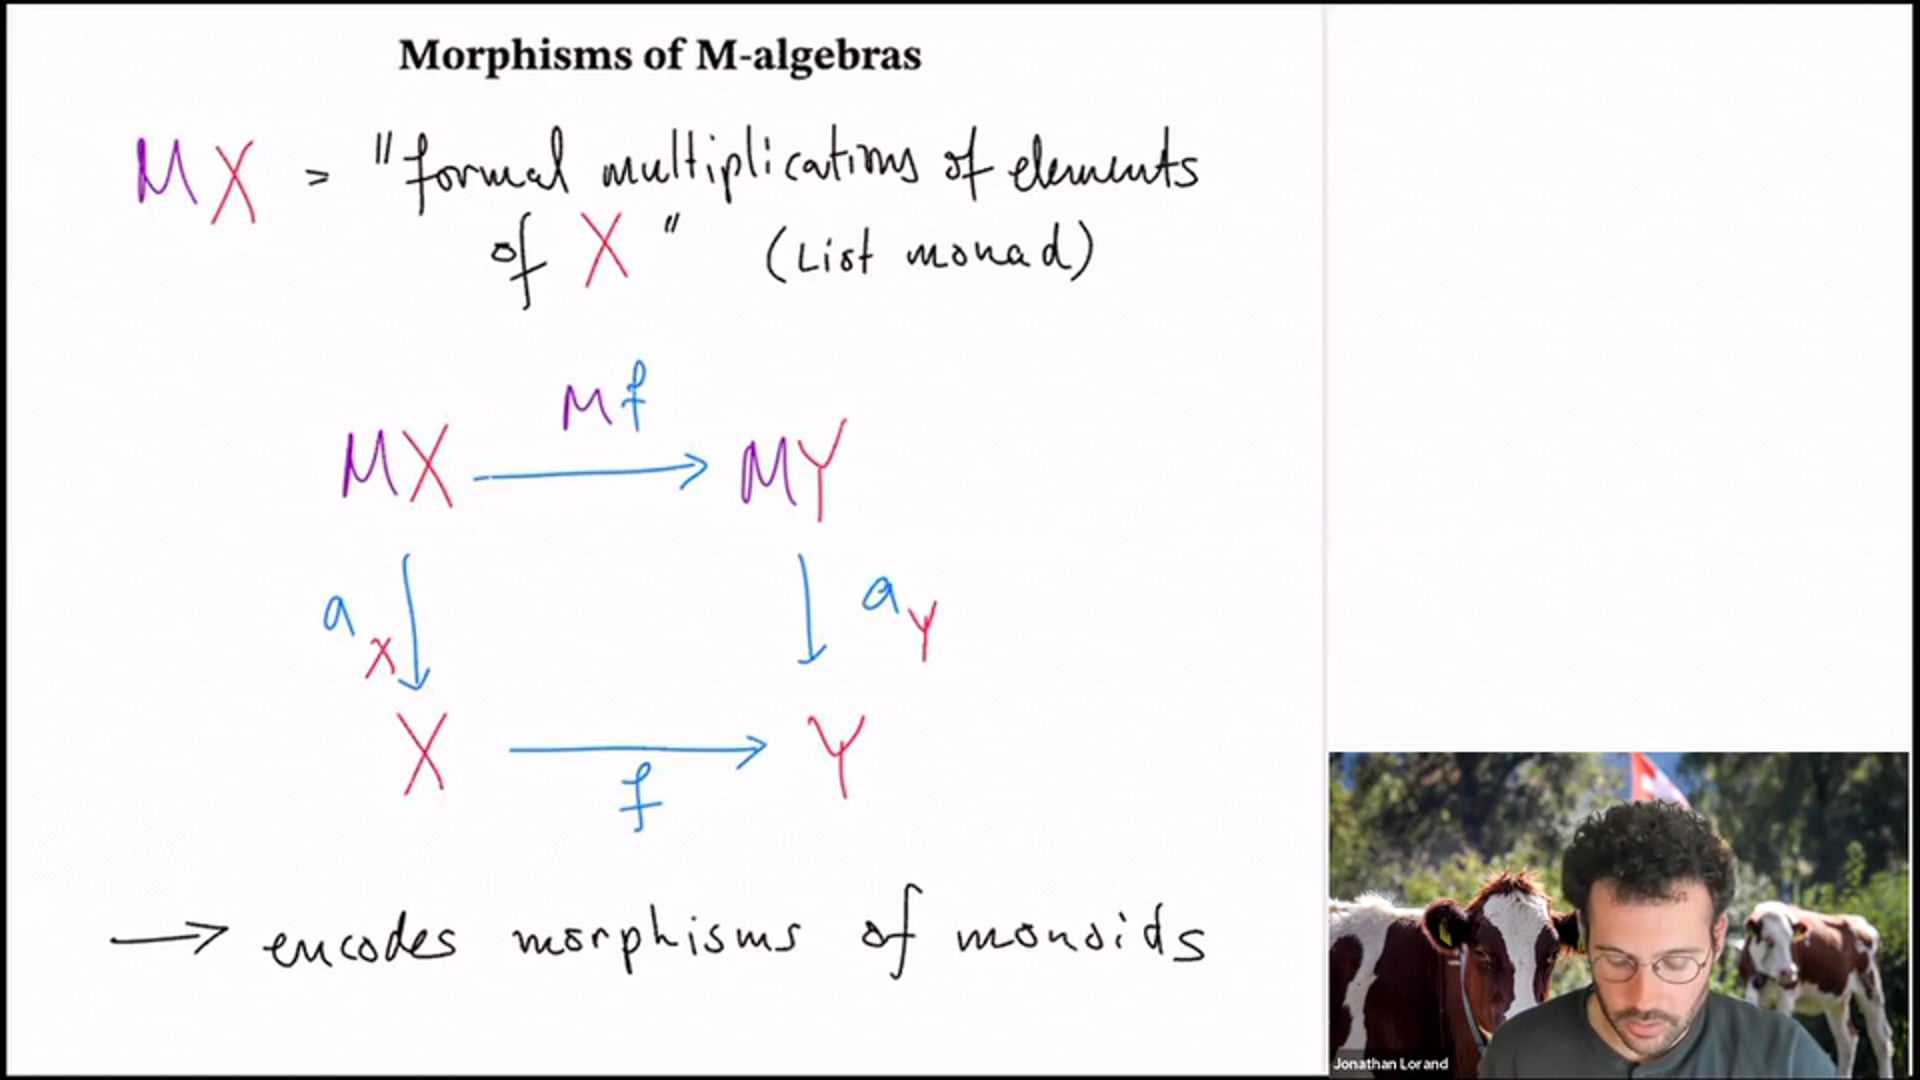 Morphisms of M-algebras
MX = "formal multiplications of elements
of X" (List monad)
Mf
MX → MY
a_X ↓ ↓ a_Y
X → Y
f
→ encodes morphisms of monoids
Jonathan Lorand